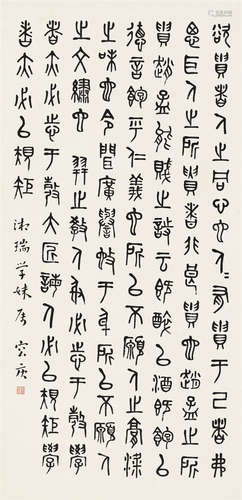 欲貴者人之同心也人人有貴于己者弗
思耳人之所貴者非良貴也趙孟之所
貴趙孟能賤之詩云既醉以酒既飽以
德言飽乎仁義也所以不願人之膏粱
之味也令聞廣譽施于身所以不願人
之文繡也 羿之教人必志于彀學
者亦必志于彀大匠誨人必以規矩學
者亦必以規矩
淑瑞學妹屬 容庚